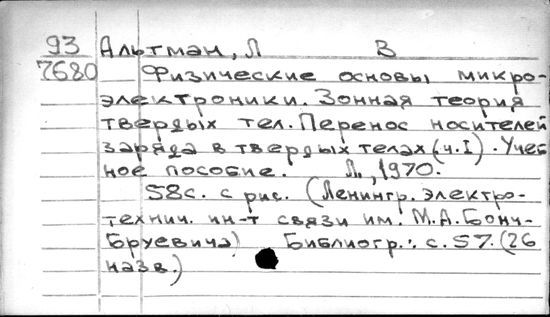 93 Альтман, Л В
7680 Физические основы микро-
электроники. Зонная теория
твердых тел. Перенос носителей
заряда в твердых телах (ч.I). Учеб
ное пособие. Л., 1970.
58с. с рис. (Ленингр. электро-
технич. ин-т связи им. М.А.Бонч-
Бруевича) Библиогр.: с.57. (26
назв.)